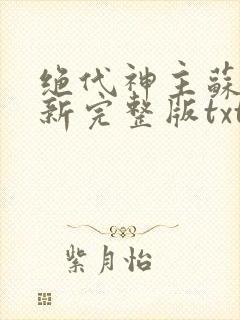 绝代神主蘇
新完整版txt
紫月怡